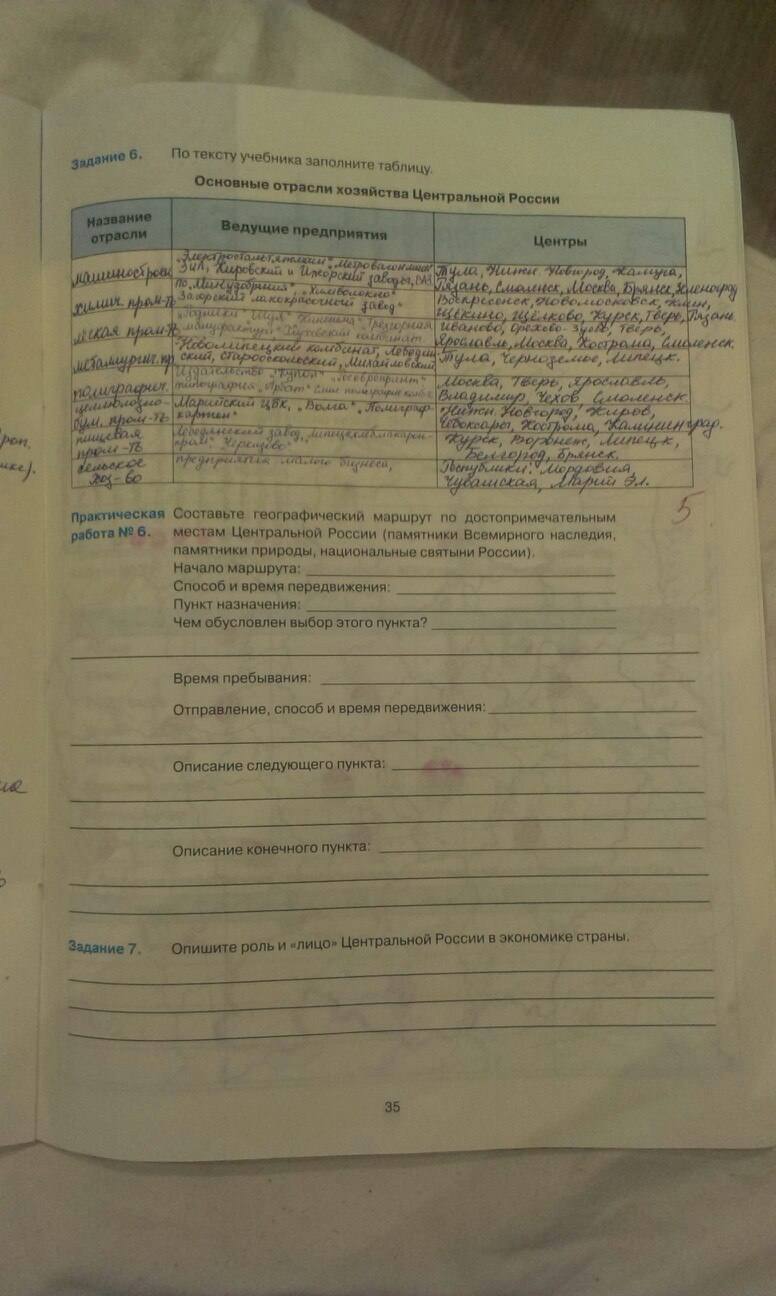 Задание 6. По тексту учебника заполните таблицу.
Основные отрасли хозяйства Центральной России
Название отрасли
Ведущие предприятия
Центры
машиностроен
ЗИЛ, Кировский и Ижорский заводы, ВАЗ
Тула, Нижн. Новгород, Калуга,
Рязань, Смоленск, Москва, Брянск, Зеленоград
химич. пром-ть
по „Минудобрения", „Химволокно"
Загорский лакокрасочный завод"
Воскресенск, Новомосковск, Клин,
Щёкино, Щёлково, Курск, Тверь, Рязань
легкая пром-ть
мануфактура"
Иваново, Орехово-Зуево, Тверь,
Ярославль, Москва, Кострома, Смоленск.
металлургич. пр
Новолипецкий комбинат, Лебедин
ский, Старооскольский, Михайловский
Тула, Черноземье, Липецк.
полиграфич.
Издательство „Купол"
типография „Арбат"
Москва, Тверь, Ярославль,
Владимир, Чехов, Смоленск.
целлюлозно-
бум. пром-ть
Марийский ЦБК, „Волга", „Полиграф-
картон"
Нижн. Новгород, Киров,
Чебоксары, Кострома, Калининград.
пищевая
пром-ть
Лебедянский завод,
пром"
Курск, Воронеж, Липецк,
Белгород, Брянск.
сельское
хоз-во
предприятия малого бизнеса,
Республики: Мордовия,
Чувашская, Марий Эл.
5
Практическая Составьте географический маршрут по достопримечательным
работа № 6. местам Центральной России (памятники Всемирного наследия,
памятники природы, национальные святыни России).
Начало маршрута:
Способ и время передвижения:
Пункт назначения:
Чем обусловлен выбор этого пункта?
Время пребывания:
Отправление, способ и время передвижения:
Описание следующего пункта:
Описание конечного пункта:
Задание 7. Опишите роль и «лицо» Центральной России в экономике страны.
35